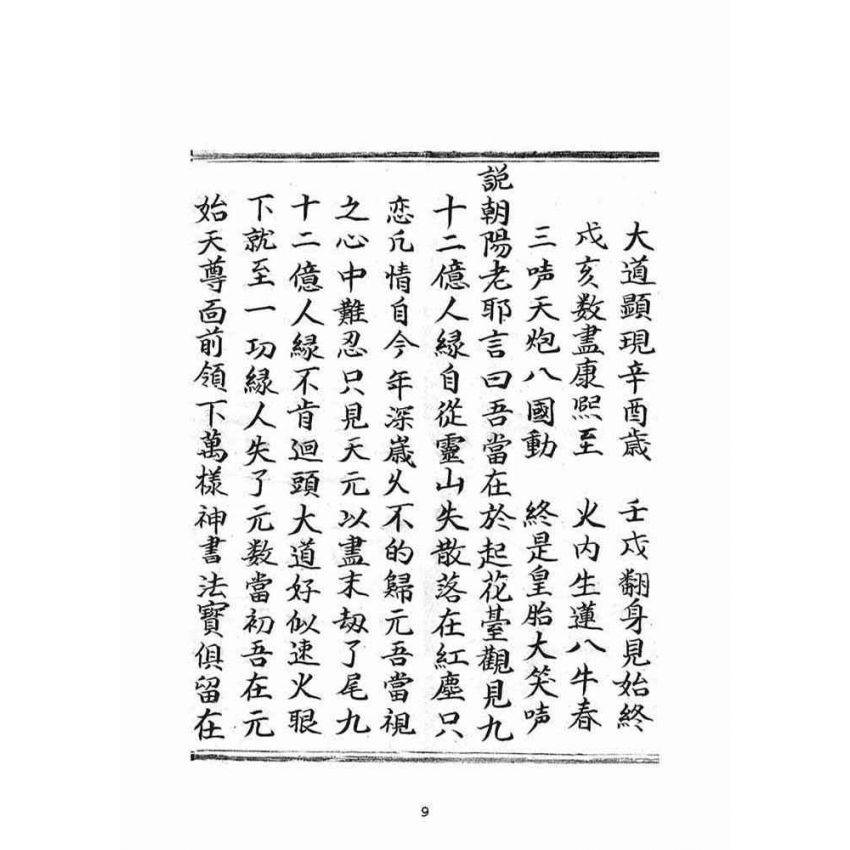 大道顯現辛酉歲 壬戌翻身見始終
戌亥数盡康熙至 火內生蓮八牛春
三唥天炮八國動 終是皇胎大笑唥
說朝陽老耶言曰吾當在於起花臺觀見九
十二億人緣自從靈山失散落在紅塵只
恋凢情自今年深歲久不的歸元吾當視
之心中難忍只見天元以盡末刼了尾九
十二億人緣不肯迴頭大道好似速火眼
下就至一功緣人失了元数當初吾在元
始天尊面前領下萬樣神書法寶俱留在
9